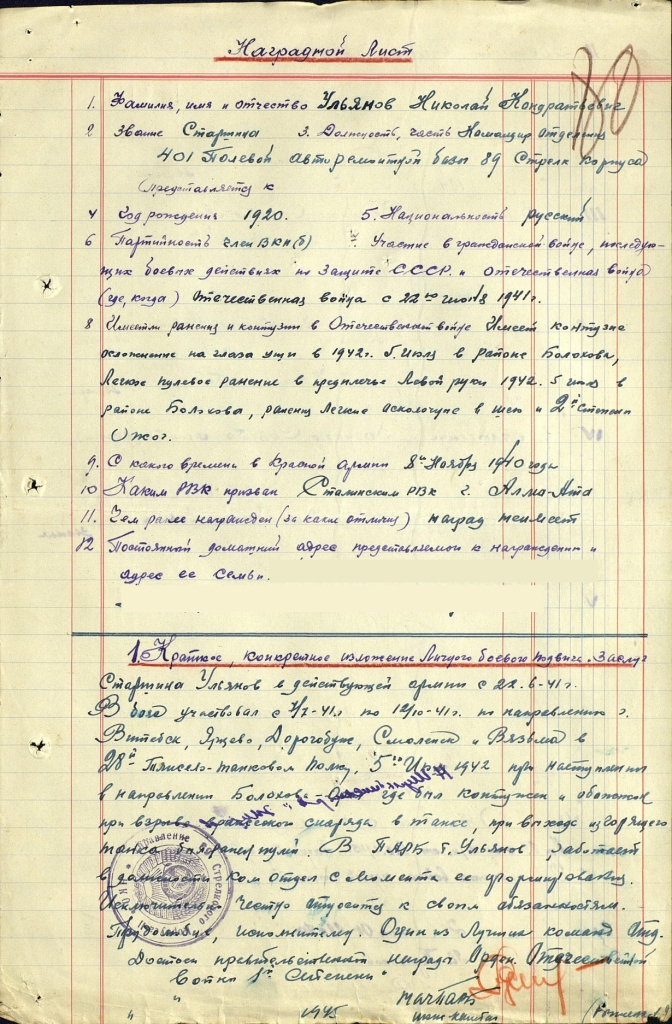 Наградной Лист
180
1. Фамилия, имя и отчество Ульянов Николай Кондратьевич
2 Звание Старшина 3. Должность, часть Командир Отделения
401 Полевой авторемонтной базы 89 Стрелк Корпуса
Представляется к
4 Год рождения 1920. 5. Национальность русский
6 Партийность член ВКП(б) 7. Участие в гражданской войне, последую-
щих боевых действиях по защите СССР и Отечественная война
(где, когда) Отечественная война с 22го июня 1941г.
8 Имеет ли ранения и контузии в Отечественной войне Имеет контузию
осложнение на глаза уши в 1942г. 5. Июля в районе Болохова,
Легкое пулевое ранение в предплечье Левой руки 1942. 5 июля в
районе Болохова, ранения Легкие в шею и 2й степени
Ожог.
9. С какого времени в Красной армии 8го Ноября 1940 года
10 Каким РВК призван Сталинским РВК г. Алма-Ата
11. Чем ранее награжден (за какие отличия) наград не имеет
12 Постоянной домашний адрес представляемой к награждению и
адрес ее семьи.
1. Краткое, конкретное изложение Личного боевого подвига. Заслу-
Старшина Ульянов в действующей армии с 22.6-41г.
В боях участвовал с 4/7-41г по 12/10-41г. по направлению г.
Витебск, Ярцево, Дорогобуж, Смоленск и Вязьма в
28й Тяжело-танковом полку, 5го 1942 при наступлении
в направлении Болохова где был контужен и обожжен
при взрыве снаряда в танке, при выходе из горящего
танка был ранен пулей. В ПАРБ т. Ульянов работает
в должности ком отдел с момента ее формирования.
Исключительно честно относится к своим обязанностям.
Трудолюбив, исполнителен. Один из Лучших команд Отд.
Достоин правительственной награды Орден Отечественной
войны 1й степени"
Управление Стрелкового
1945